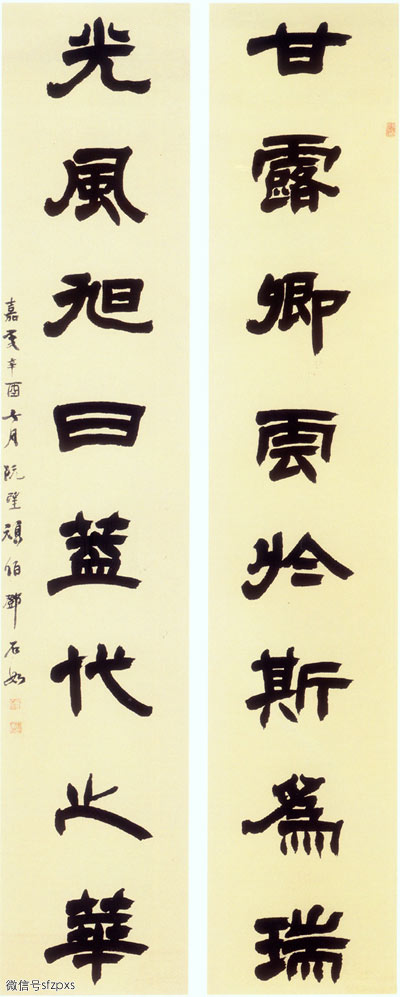 甘露卿雲於斯爲瑞
光風旭日蓋代之華
嘉慶辛酉月頑伯鄧石如
微信号sfzpxs